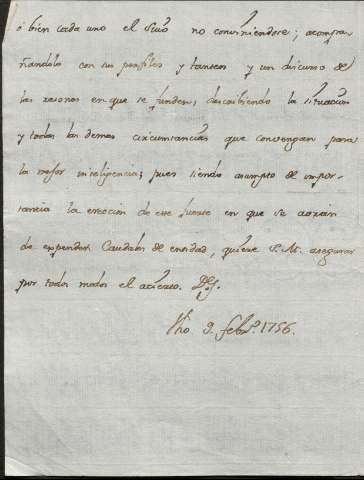 ó bien cada uno el suio no conviniendose; acompa-
ñandolo con sus perfiles y tanteos y un discurso de
las razones en que se funden, describiendo la situacion
y todas las demas circunstancias que convengan para
la mejor inteligencia; pues siendo asumpto de impor-
tancia la ereccion de este fuerte en que se avran
de expender Caudales de entidad, quiere S. M. asegurar
por todos modos el acierto. Dios.
fho 9. feb.º 1756.